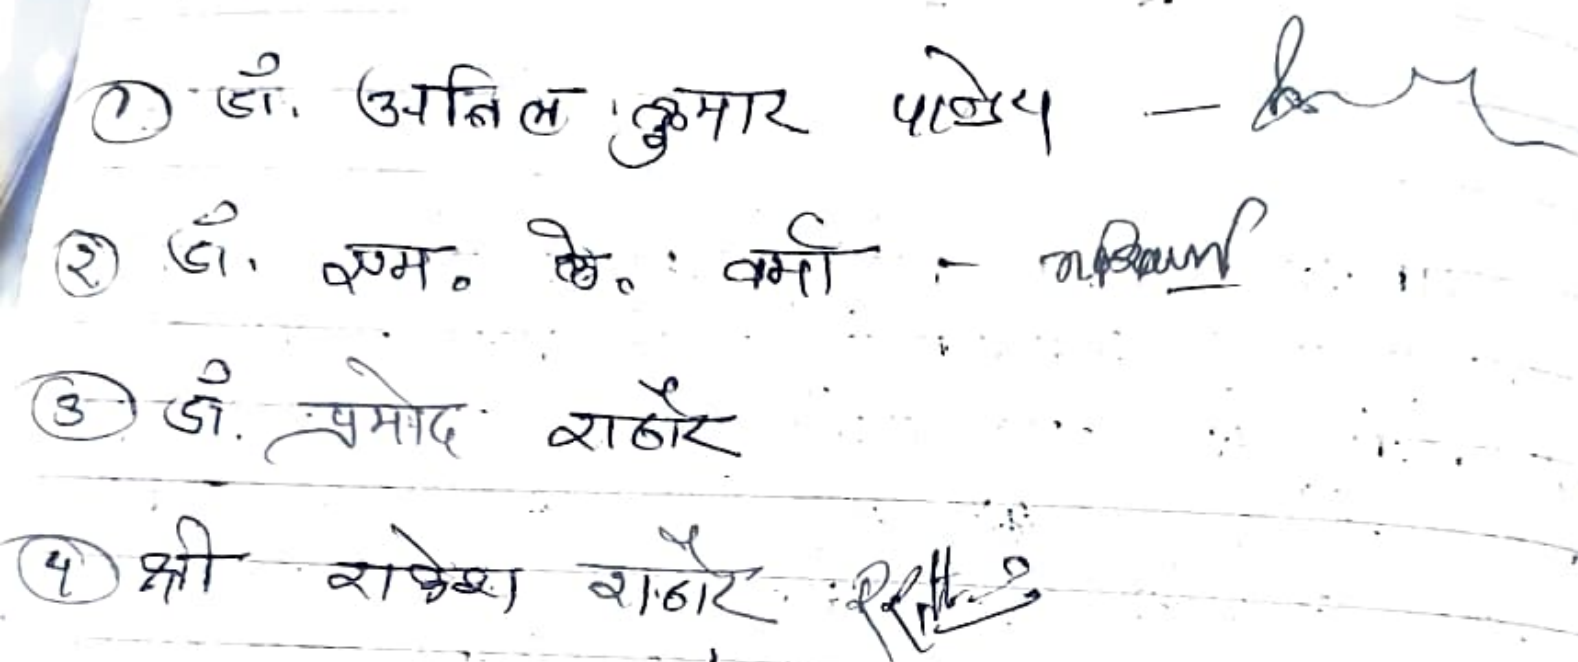 ① डॉ. अनिल कुमार पाण्डेय –
② डॉ. एम. के. वर्मा :-
③ डॉ. प्रमोद राठौर
④ श्री राकेश राठौर